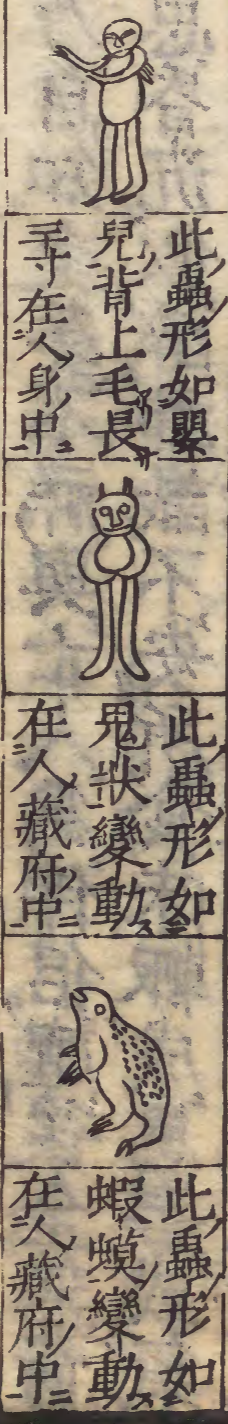 此蟲形如嬰
兒背上毛長
三寸在人身中
此蟲形如
鬼狀變動
在人藏府中
此蟲形如
蝦蟆變動
在人藏府中